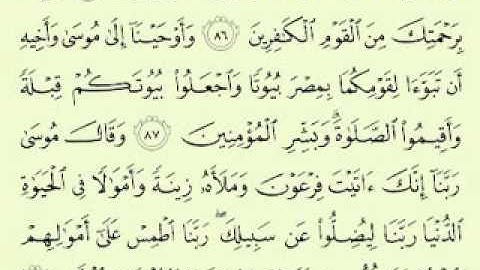 بِرَحْمَتِكَ مِنَ ٱلْقَوْمِ ٱلْكَـٰفِرِينَ ٨٦ وَأَوْحَيْنَآ إِلَىٰ مُوسَىٰ وَأَخِيهِ
أَن تَبَوَّءَا لِقَوْمِكُمَا بِمِصْرَ بُيُوتًا وَٱجْعَلُوا۟ بُيُوتَكُمْ قِبْلَةً
وَأَقِيمُوا۟ ٱلصَّلَوٰةَ ۗ وَبَشِّرِ ٱلْمُؤْمِنِينَ ٨٧ وَقَالَ مُوسَىٰ
رَبَّنَآ إِنَّكَ ءَاتَيْتَ فِرْعَوْنَ وَمَلَأَهُۥ زِينَةً وَأَمْوَٰلًا فِى ٱلْحَيَوٰةِ
ٱلدُّنْيَا رَبَّنَا لِيُضِلُّوا۟ عَن سَبِيلِكَ ۖ رَبَّنَا ٱطْمِسْ عَلَىٰٓ أَمْوَٰلِهِمْ